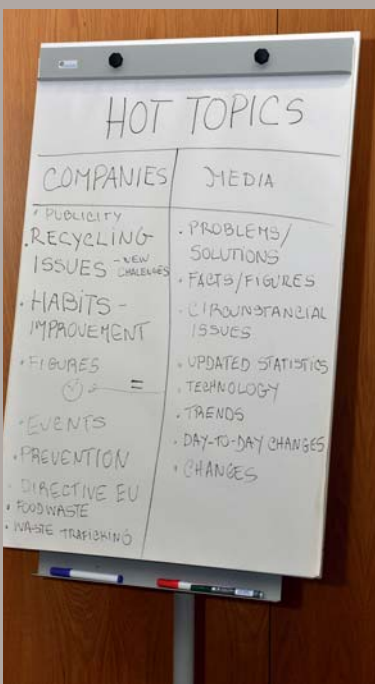 HOT TOPICS
COMPANIES
• PUBLICITY
• RECYCLING
ISSUES - NEW
CHALENGES
• HABITS -
IMPROVEMENT
• FIGURES
=
• EVENTS
• PREVENTION
• DIRECTIVE EU
• FOODWASTE
• WASTE TRAFICKING
MEDIA
• PROBLEMS/
SOLUTIONS
• FACTS/FIGURES
• CIRCUNSTANCIAL
ISSUES
• UPDATED STATISTICS
• TECHNOLOGY
• TRENDS
• DAY-TO-DAY CHANGES
• CHANGES